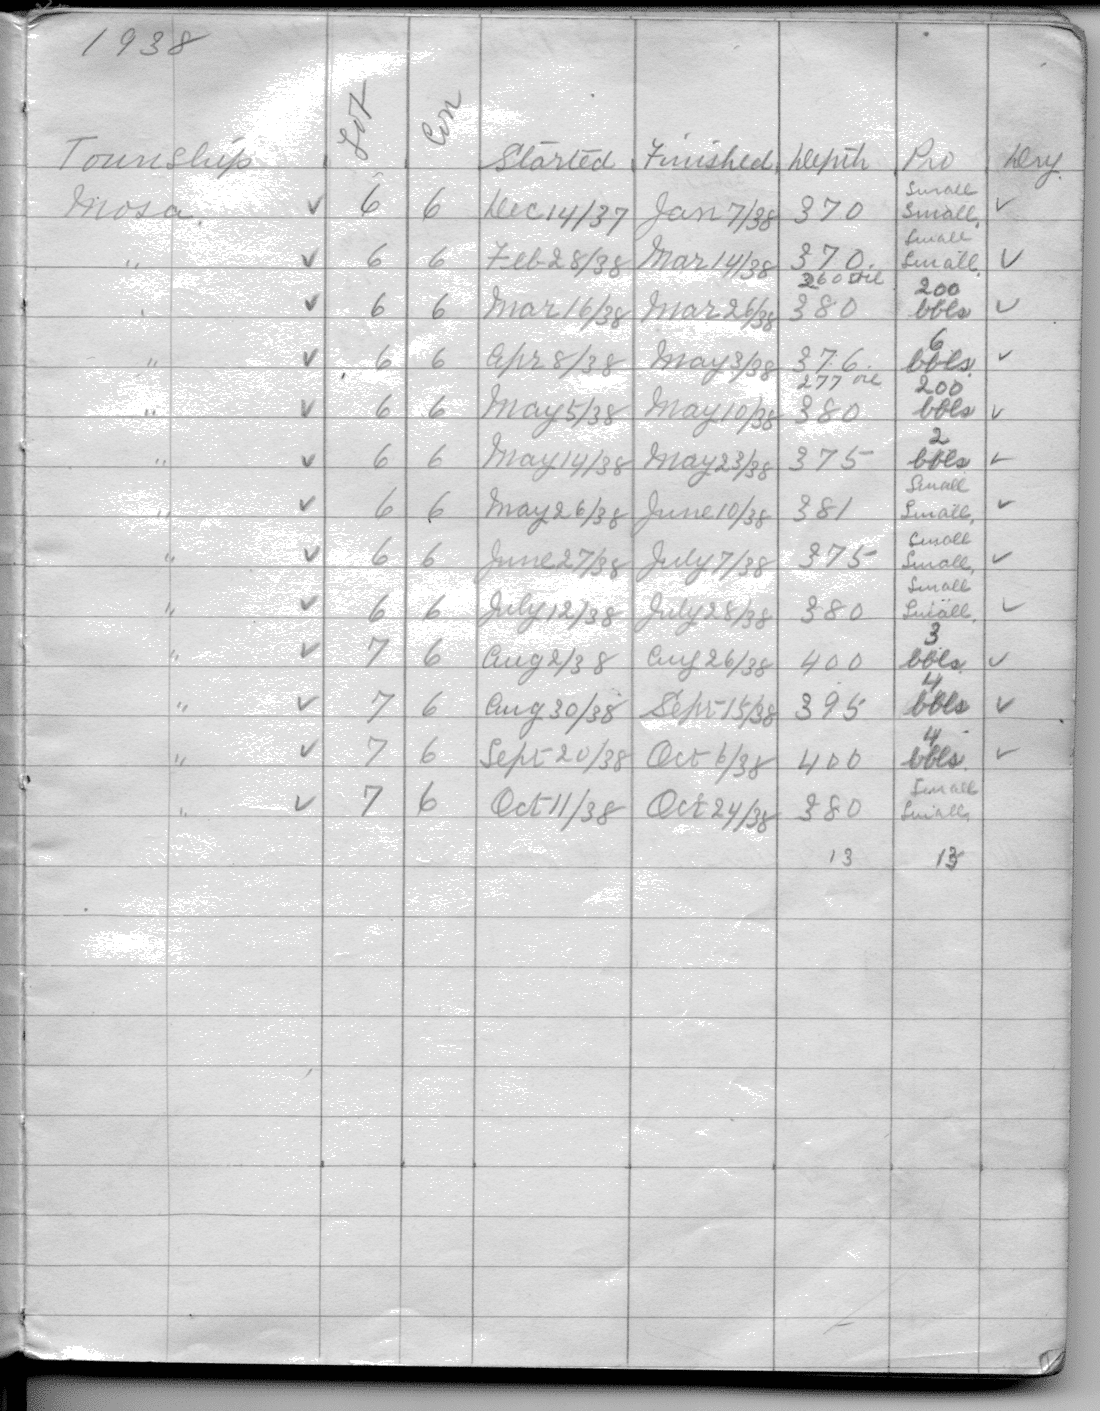 1938
Township Lot Con Started Finished Depth Pro Dry
Small
Mosa. ✓ 6 6 Dec 14/37 Jan 7/38 370 Small. ✓
Small
" ✓ 6 6 Feb 28/38 Mar 14/38 370. Small. ✓
260 oil 200
" ✓ 6 6 Mar 16/38 Mar 26/38 380 bbls ✓
6
" ✓ 6 6 Apr 8/38 May 3/38 376. bbls. ✓
277 oil 200
" ✓ 6 6 May 5/38 May 10/38 380 bbls ✓
2
" ✓ 6 6 May 14/38 May 23/38 375 bbls ✓
Small
" ✓ 6 6 May 26/38 June 10/38 381 Small. ✓
Small
" ✓ 6 6 June 27/38 July 7/38 375 Small. ✓
Small
" ✓ 6 6 July 12/38 July 28/38 380 Small. ✓
3
" ✓ 7 6 Aug 2/38 Aug 26/38 400 bbls. ✓
4
" ✓ 7 6 Aug 30/38 Sept 15/38 395 bbls ✓
4
" ✓ 7 6 Sept 20/38 Oct 6/38 400 bbls. ✓
Small
" ✓ 7 6 Oct 11/38 Oct 24/38 380 Small.
13 13